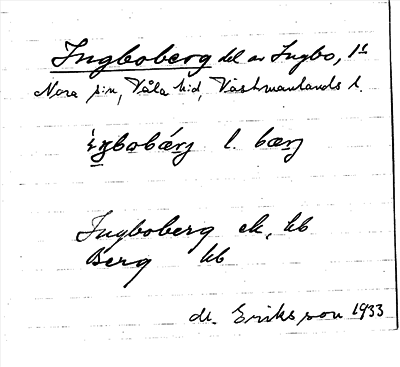 Ingboberg del av Ingbo, 1s
Nora sn, Våla hd, Västmanlands l.
ìŋbobárj l. bærj
Ingboberg ek, kb
Berg kb
M. Eriksson 1933